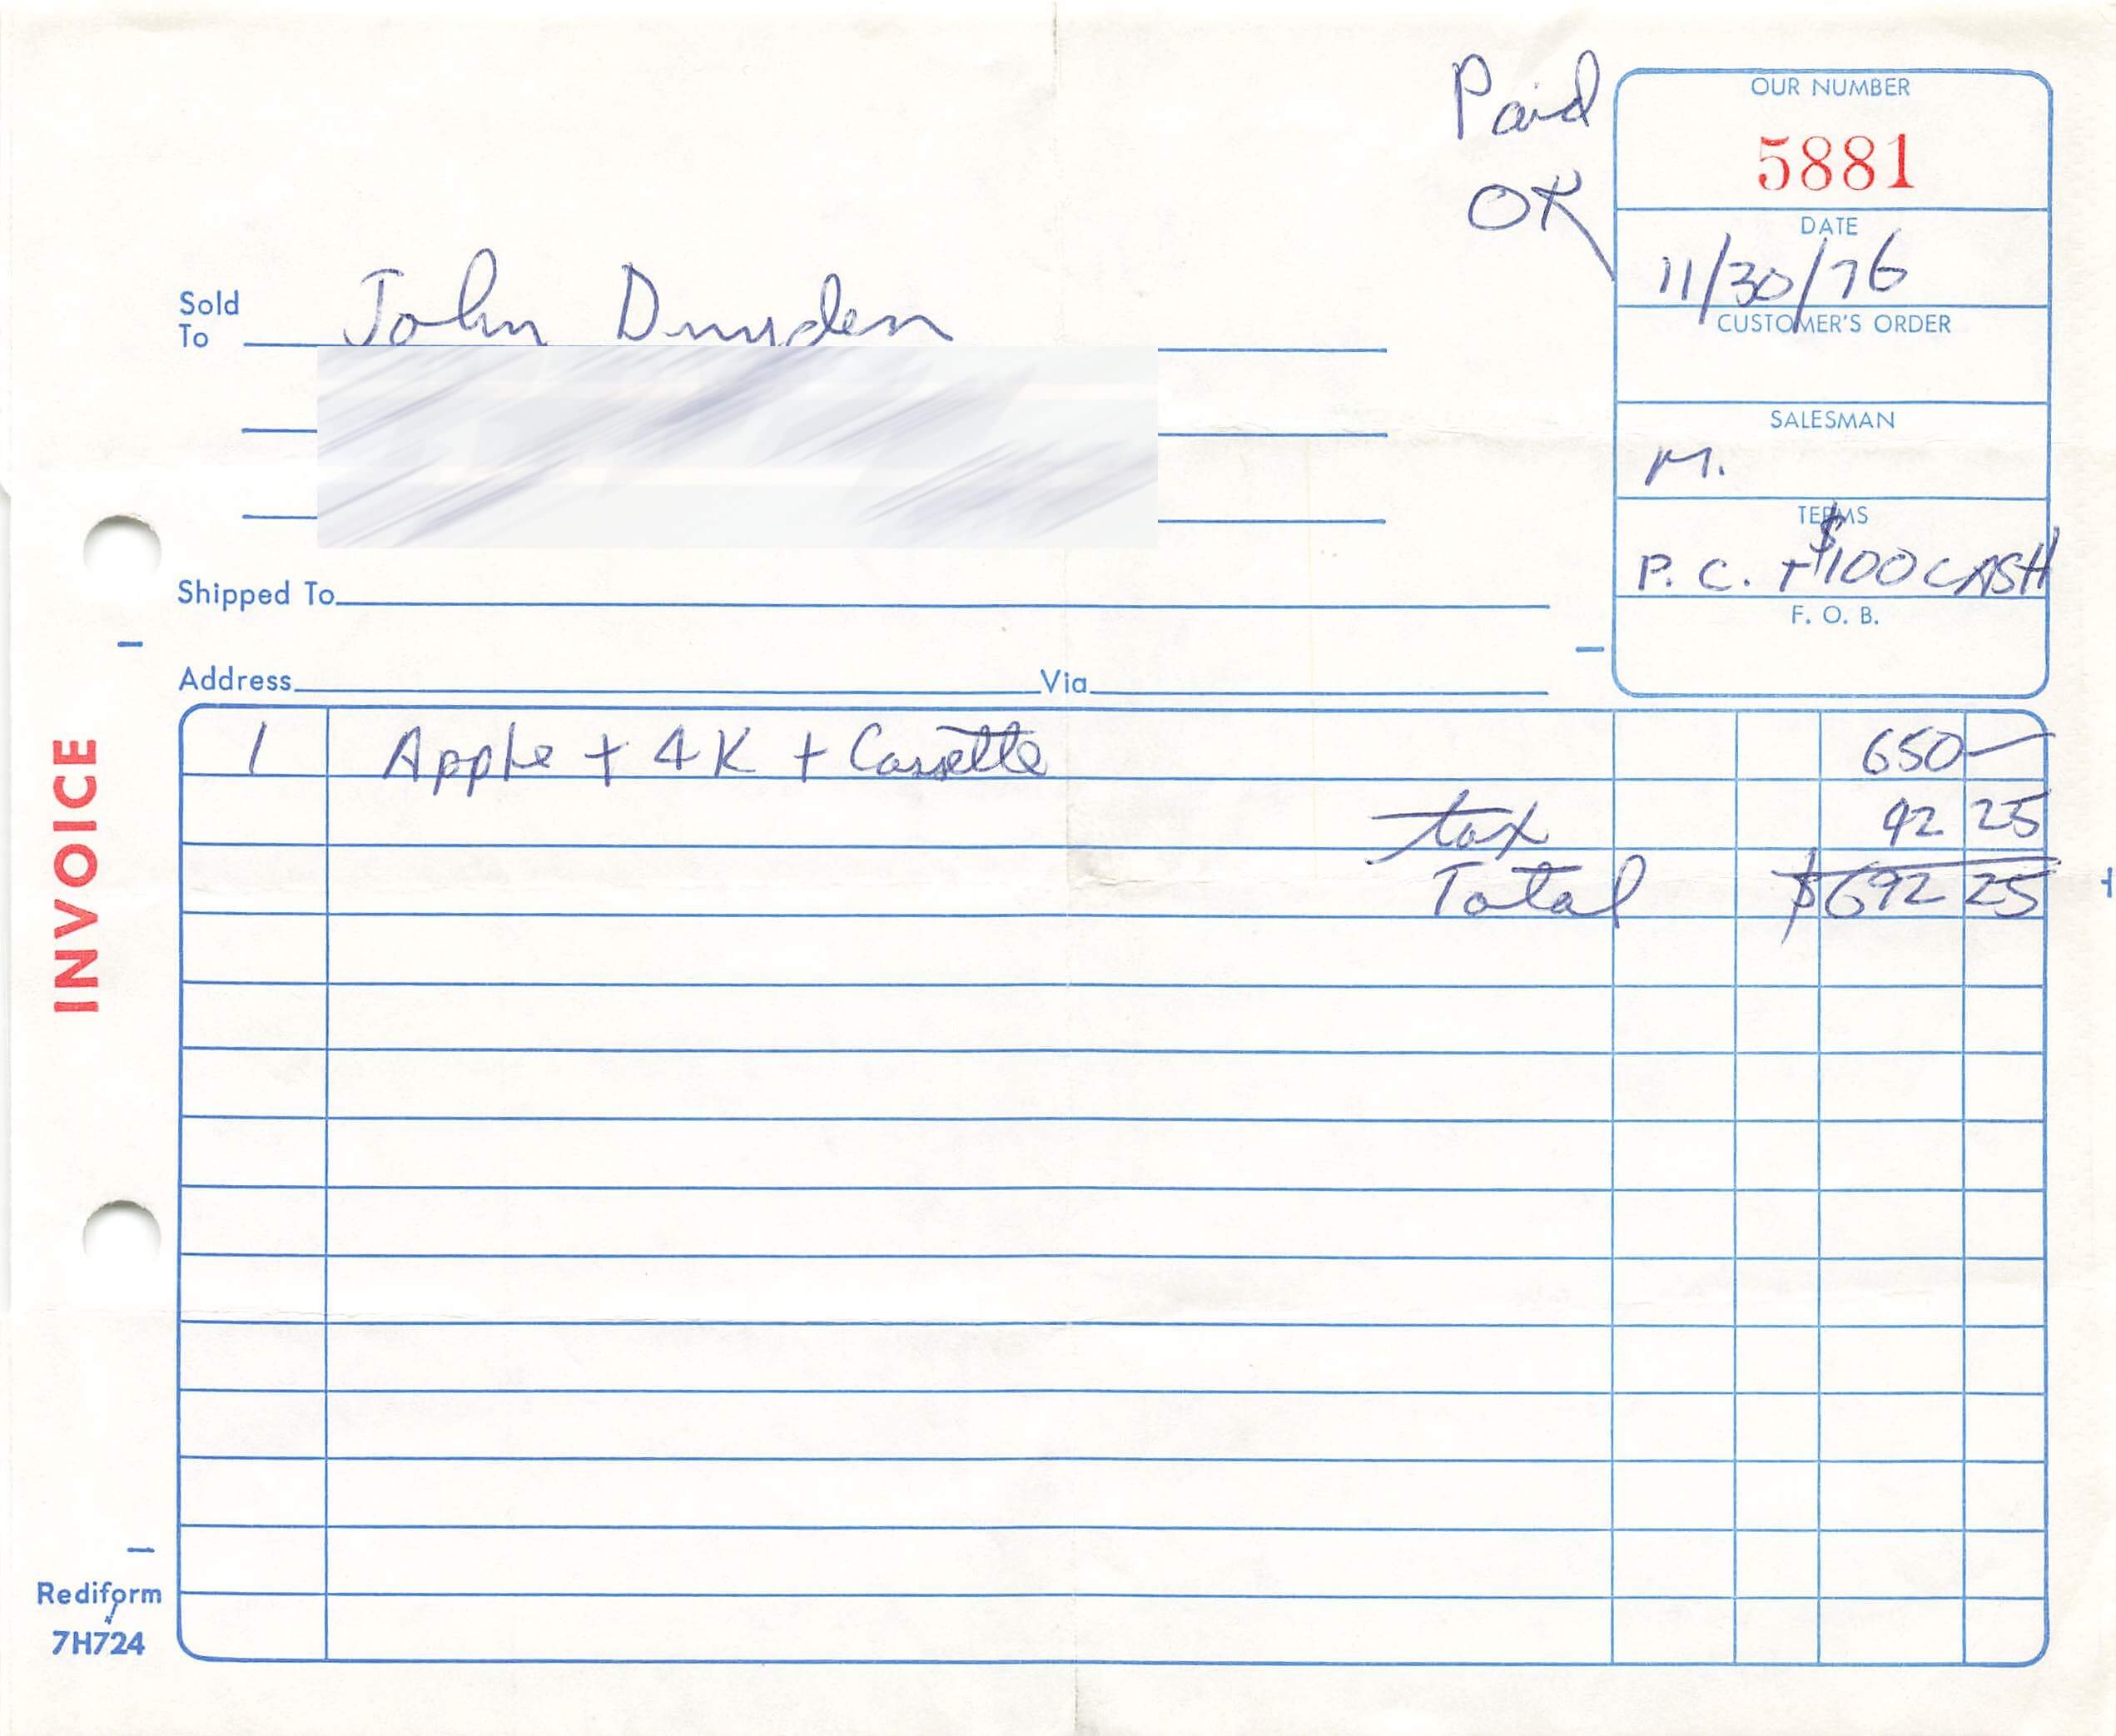 Paid
OK
OUR NUMBER
5881
DATE
11/30/76
CUSTOMER'S ORDER
SALESMAN
M.
TERMS
P. C. + $100 CASH
F. O. B.
Sold
To John
Shipped To
Address Via
INVOICE
1 Apple + 4K + Cassette 650 —
tax 42 25
Total $692 25
Rediform
7H724